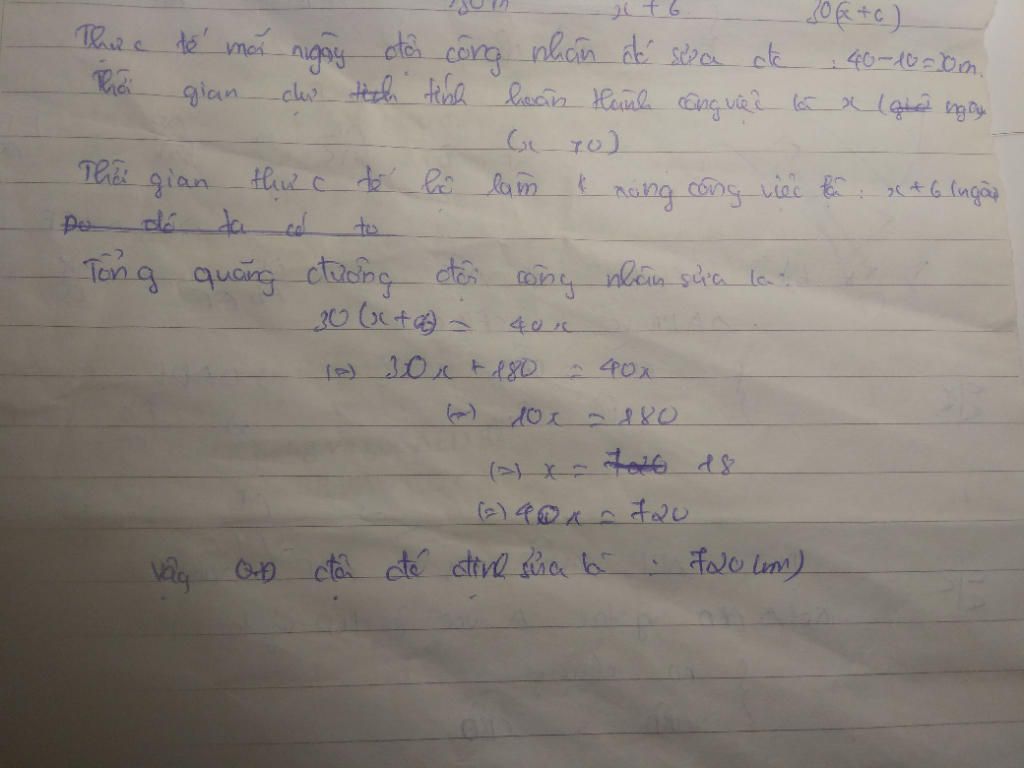 30m x + 6 30(x+6)
Thực tế mỗi ngày đội công nhân đó sửa đc : 40-10=30m.
Thời gian dự tính hoàn thành công việc là x (ngày
(x >0)
Thời gian thực tế họ làm xong công việc là : x+6 (ngày)
Do đó ta có to
Tổng quãng đường đội công nhân sửa là :
30(x+6) = 40x
(=) 30x + 180 = 40x
(=) 10x = 180
(=) x = 18
(=) 40x = 720
Vậy QĐ đội đó định sửa là : 720 (m)